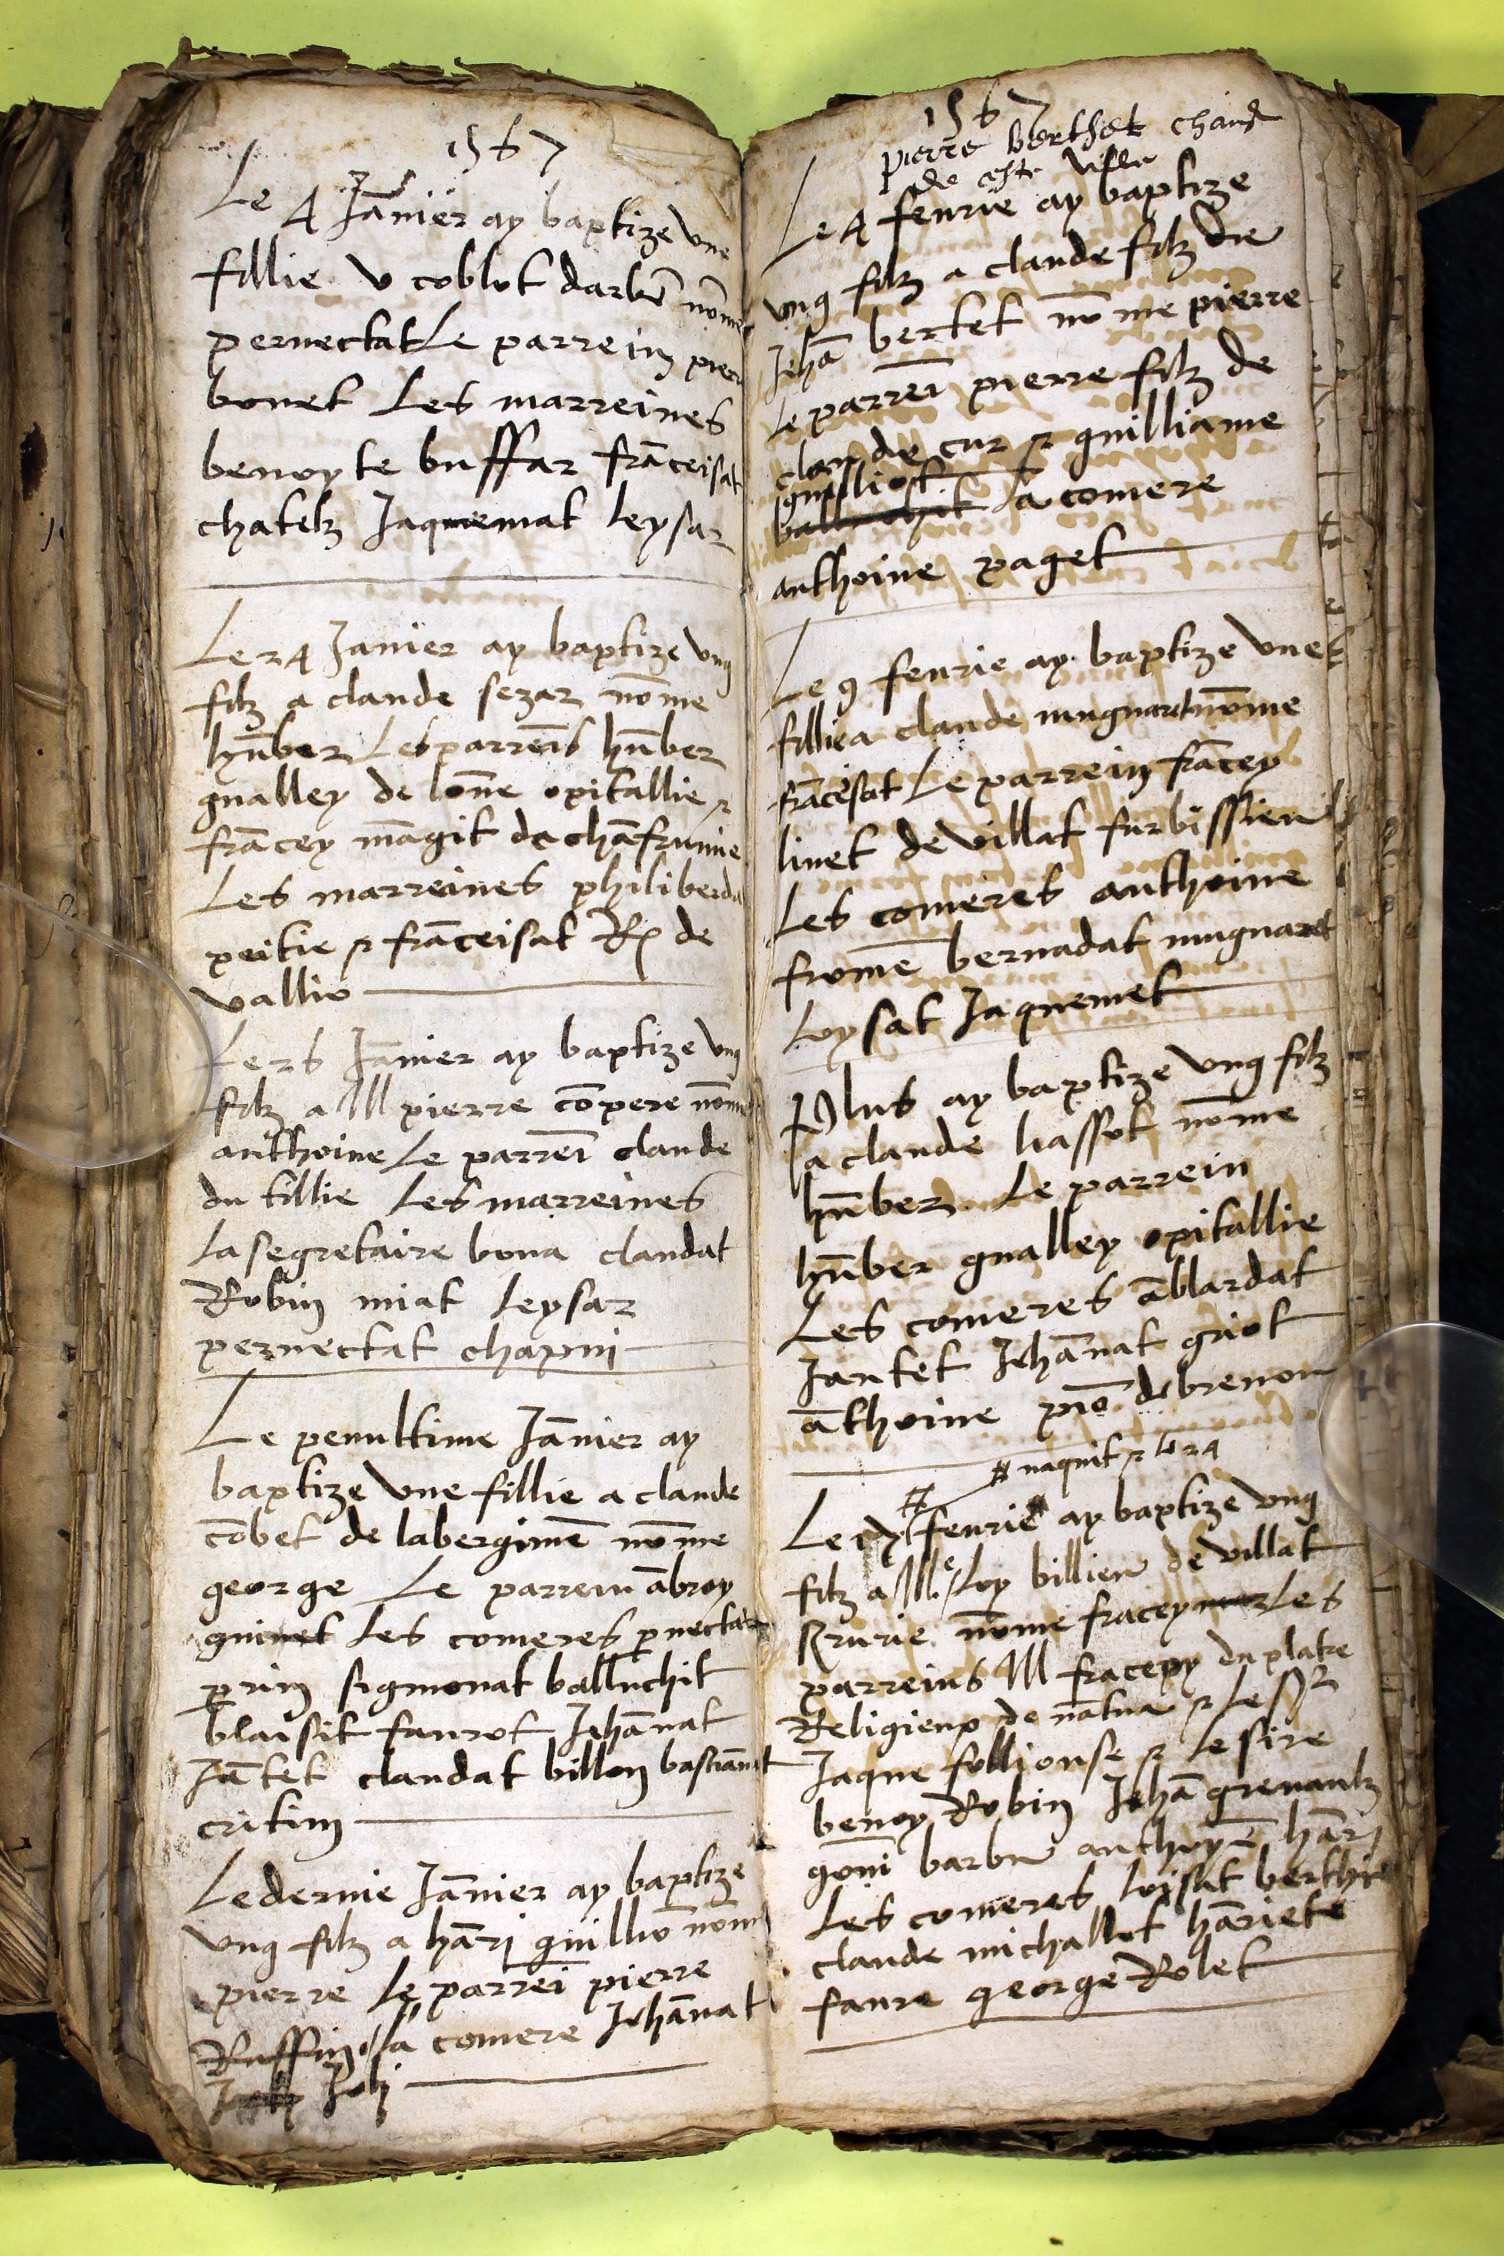 1567
Le 4 Jāvier ay baptize une
fillie v coblet darbē nōme
pernectat Le parrein pierr
bonet Les marreines
benoyte buffar frāceisat
chatelz Jaquemat Leysar
Le 24 Janier ay baptize ung
filz a claude sezar nōme
hūber Les parreīs hūber
gualley de lōne opitallie &
frācey māgit de
Les marreines philiberda
peitie & frāceisat de
vallio
Le 26 Jāvier ay baptize ung
filz a M pierre cōpere nōme
anthoine Le parreī claude
du tillie Les marreines
La segretaire bona claudat
Robin miat Leysar
pernectat chapui
Le penultime Jāvier ay
baptize une fillie a claude
cōbet de labergimē nōme
george Le parrein ābroy
guinet Les comeres pnectat
prin sigmonat balluchit
blaisit faurot Jehānat
Jātet claudat billon bastiānat
critin
Le dernie Jāvier ay baptize
ung filz a hāri guilliō nōme
pierre le parreī pierre
Ruffin la comere Jehānat
Joli
1567
pierre berthet
de ceste ville
Le 4 feurie ay baptize
ung filz a claude filz de
Jehā bertet nōme pierre
Le parreī pierre filz de
claude cur & guilliame
guilliot
balluchit La comere
anthoine paget
Le 9 feurie ay baptize une
fillie a claude muguart nōme
frāceisat Le parrein frācey
linet de villat furbissieu
Les comeres anthoine
fromē bernadat muguaret
Loysat Jaquemet
Plus ay baptize ung filz
a claude hassot nōme
hūber Le parrein
hūber gualley opitallie
Les comeres āblardat
Jantet Jehānat griot
āthoine piō de brenon
# naquit & le 24
Le 17 # feurie ay baptize ung
filz a M.e Loy billien de villat
nōme fracey Les
parreins M fracepy du platre
Religieux de nātua & le Sr
Jaque follionse & le sire
benoy Robin Jehā grenaulz
gōni barbu anthoyē hāri
Les comeres loisat berthie
claude michallet hāriete
faure george Rolet